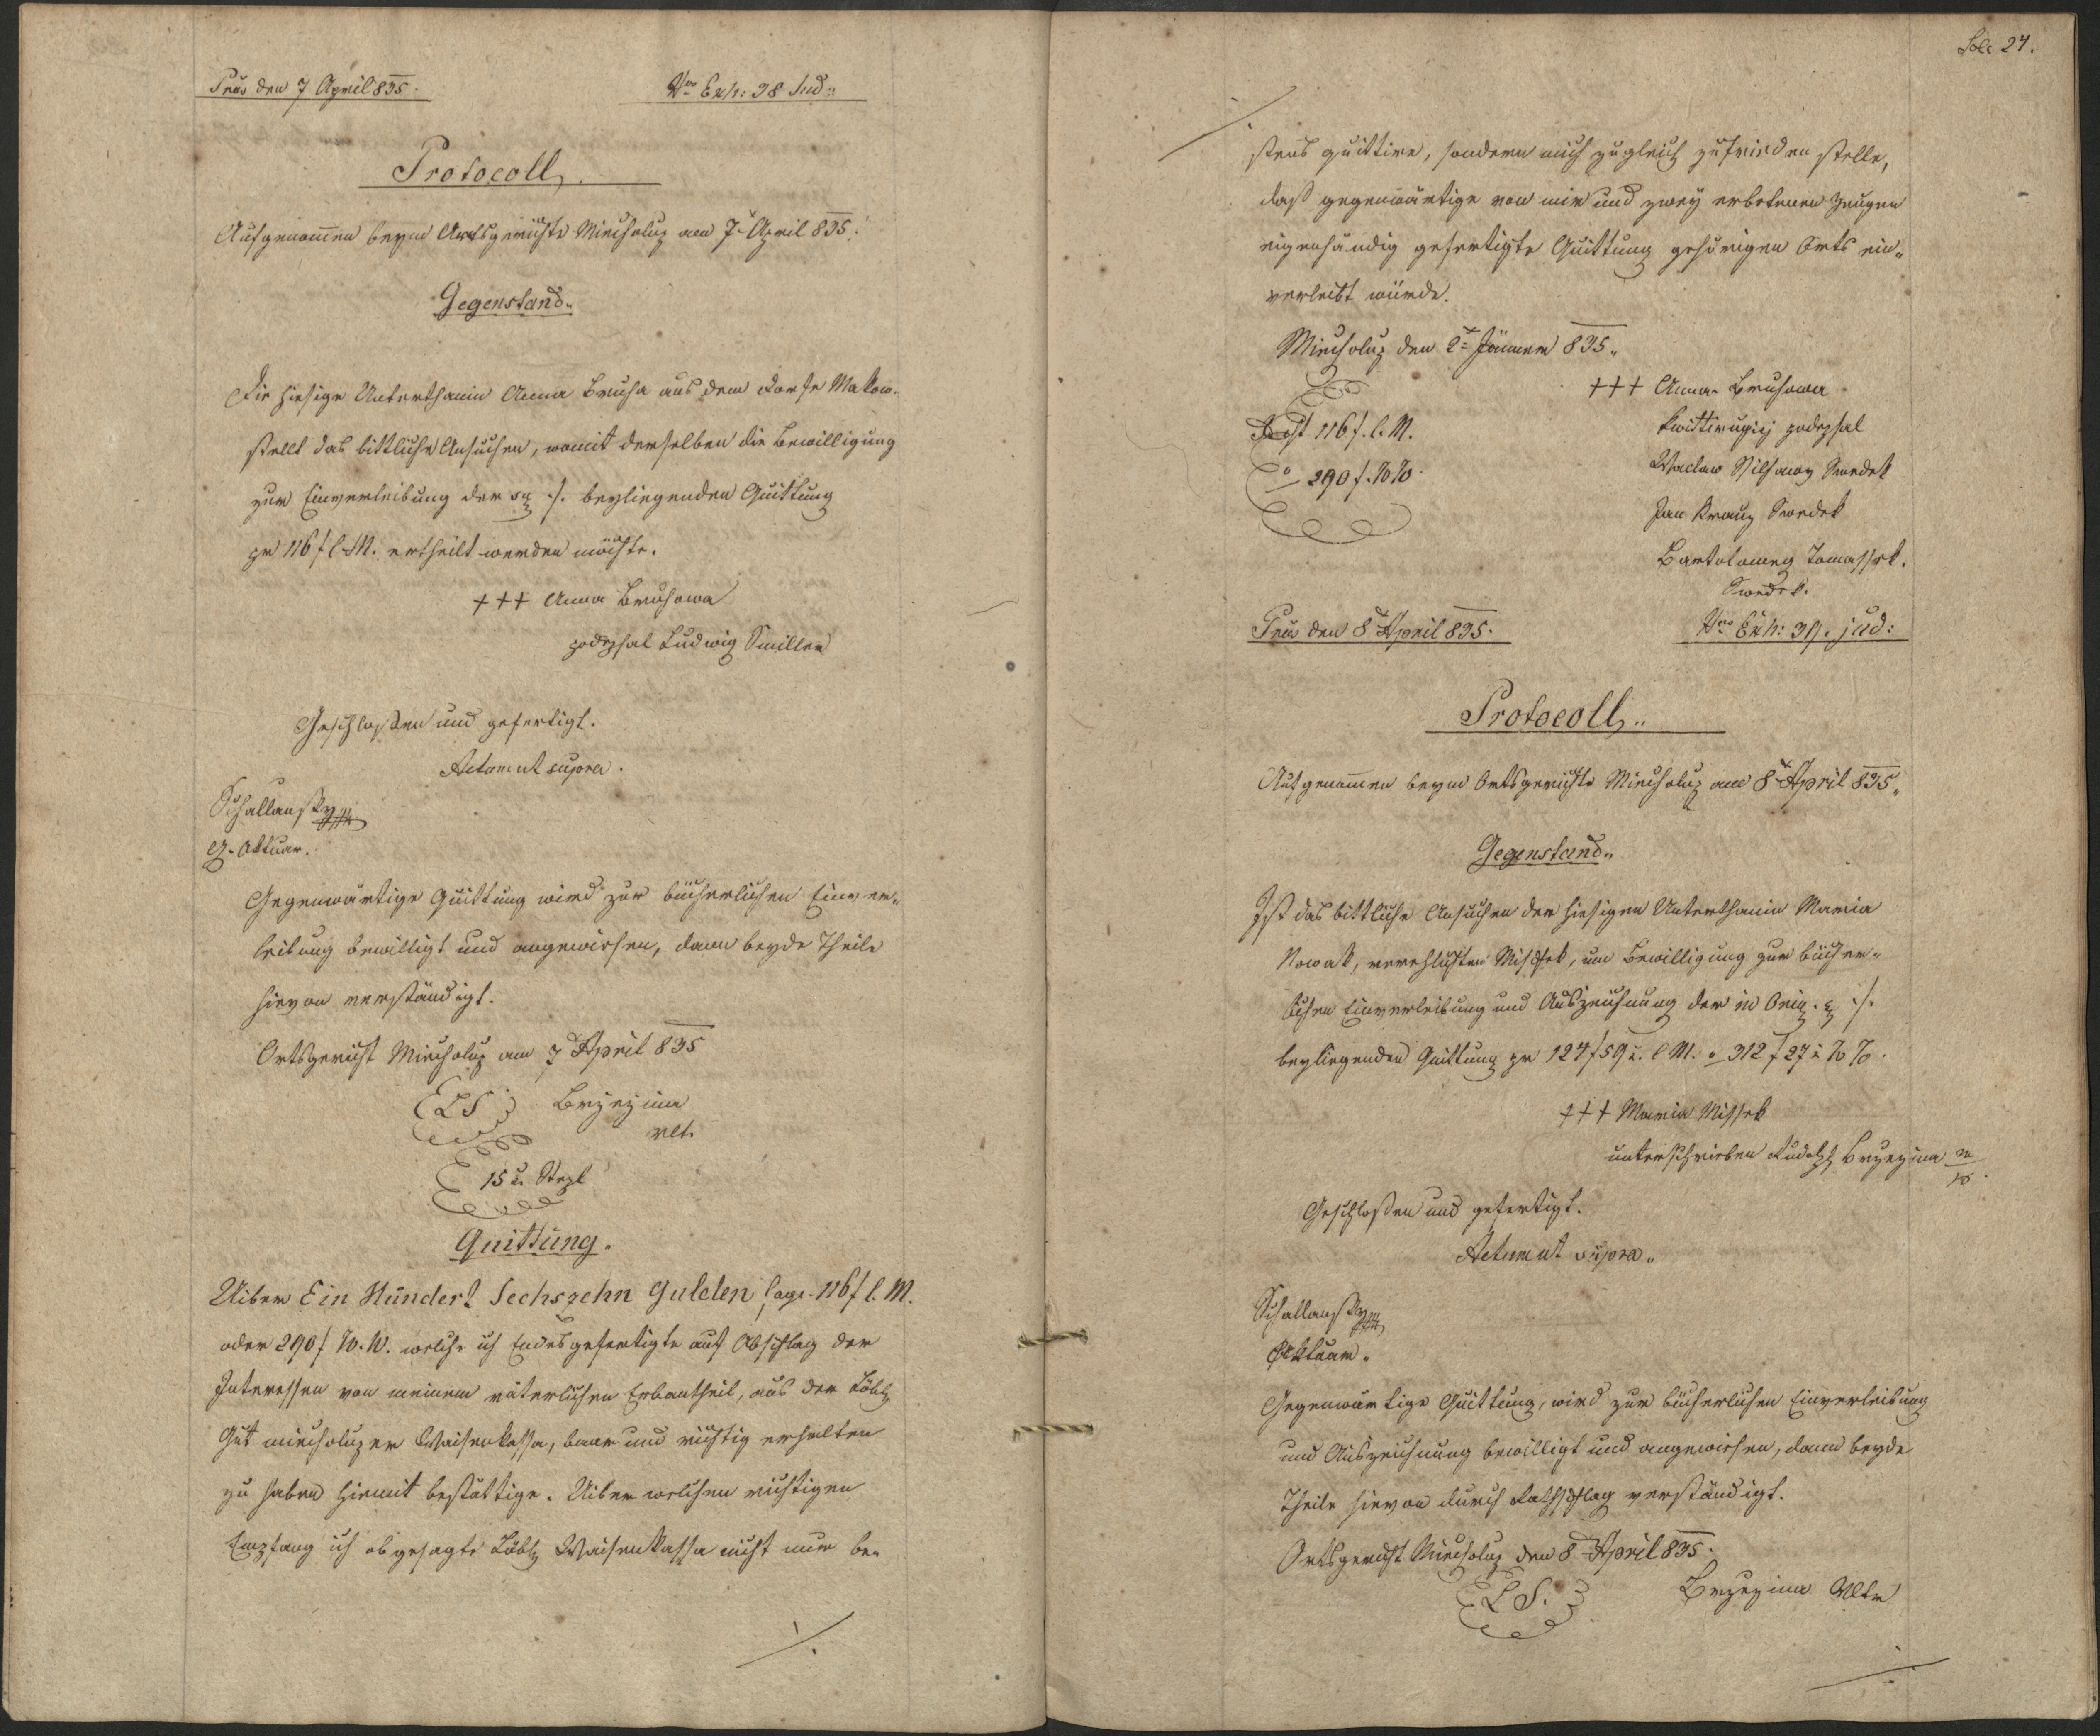 Präs den 7 April 835.
Nro Exh: 38 Jud:
Protocoll
Aufgenommen beym Amtsgerichte Miecholup am 7t April 835.
Gegenstand.
Die hiesige Unterthanin Anna Bruha aus dem Dorfe Makow
stellt das bittliche Ansuchen, womit derselben die Bewilligung
zur Einverleibung der ./. beyliegenden Quittung
pr 116 f C. M. ertheilt werden möchte.
+++ Anna Bruhowa
podepsal Ludwig Smillen
Geschlossen und gefertigt.
Actum ut supra.
Schallansky
G. Aktuar.
Gegenwärtige Quittung wird zur bücherlichen Einver-
leibung bewilligt und angewiesen, dann beyde Theile
hievon verständigt.
Ortsgericht Miecholup am 7t April 835
LS Brzezina
Vlt.
15 x Stpl
Quittung.
Uiber Ein Hundert Sechszehn Gulden sage 116 f C. M.
oder 290 f W. W. welche ich Endesgefertigte auf Abschlag der
Interessen von meinem väterlichen Erbantheil, aus der Löbl
Gut miecholuper Waisenkassa, baar und richtig erhalten
zu haben hiemit bestättige. Uiber welchen richtigen
Empfang ich obgesagte Löbl Waisenkassa nicht nur be-
./.
Fol 24.
./.
stens quittire, sondern auch zugleich zufrieden stelle,
daß gegenwärtige von mir und zwey erbetenen Zeugen
eigenhändig gefertigte Quittung gehörigen Orts ein-
verleibt würde.
Miecholup den 2t Jänner 835.
+++ Anna Bruhowa
116 f. C. M.
kwittirugicy podepsal
290 f. W W.
Waclaw Swedek
Jan Krauz Swedek
Bartolomey Tomassek.
Swedek.
Präs den 8t April 835.
Nro Exh: 39. jud:
Protocoll
Aufgenommen beym Ortsgerichte Miecholup am 8t April 835.
Gegenstand.
Ist das bittliche Ansuchen der hiesigen Unterthanin Maria
Nowak, verehlichten Missek, um Bewilligung zur bücher-
lichen Einverleibung und Auszeichnung der in Orig. ./.
beyliegenden Quittung pr 124 f 59 x. C M. o 312 f 27 x W W.
+++ Maria Missek
unterschrieben Rudolph Brzezina
Geschlossen und gefertigt.
Actum ut supra.
Schallansky
Aktuar.
Gegenwärtige Quittung, wird zur bücherlichen Einverleibung
und Auszeichnung bewilligt und angewiesen, dann beyde
Theile hievon durch Rathschlag verständigt.
Ortsgericht Miecholup den 8t April 835.
LS. Brzezina Vltr
./.